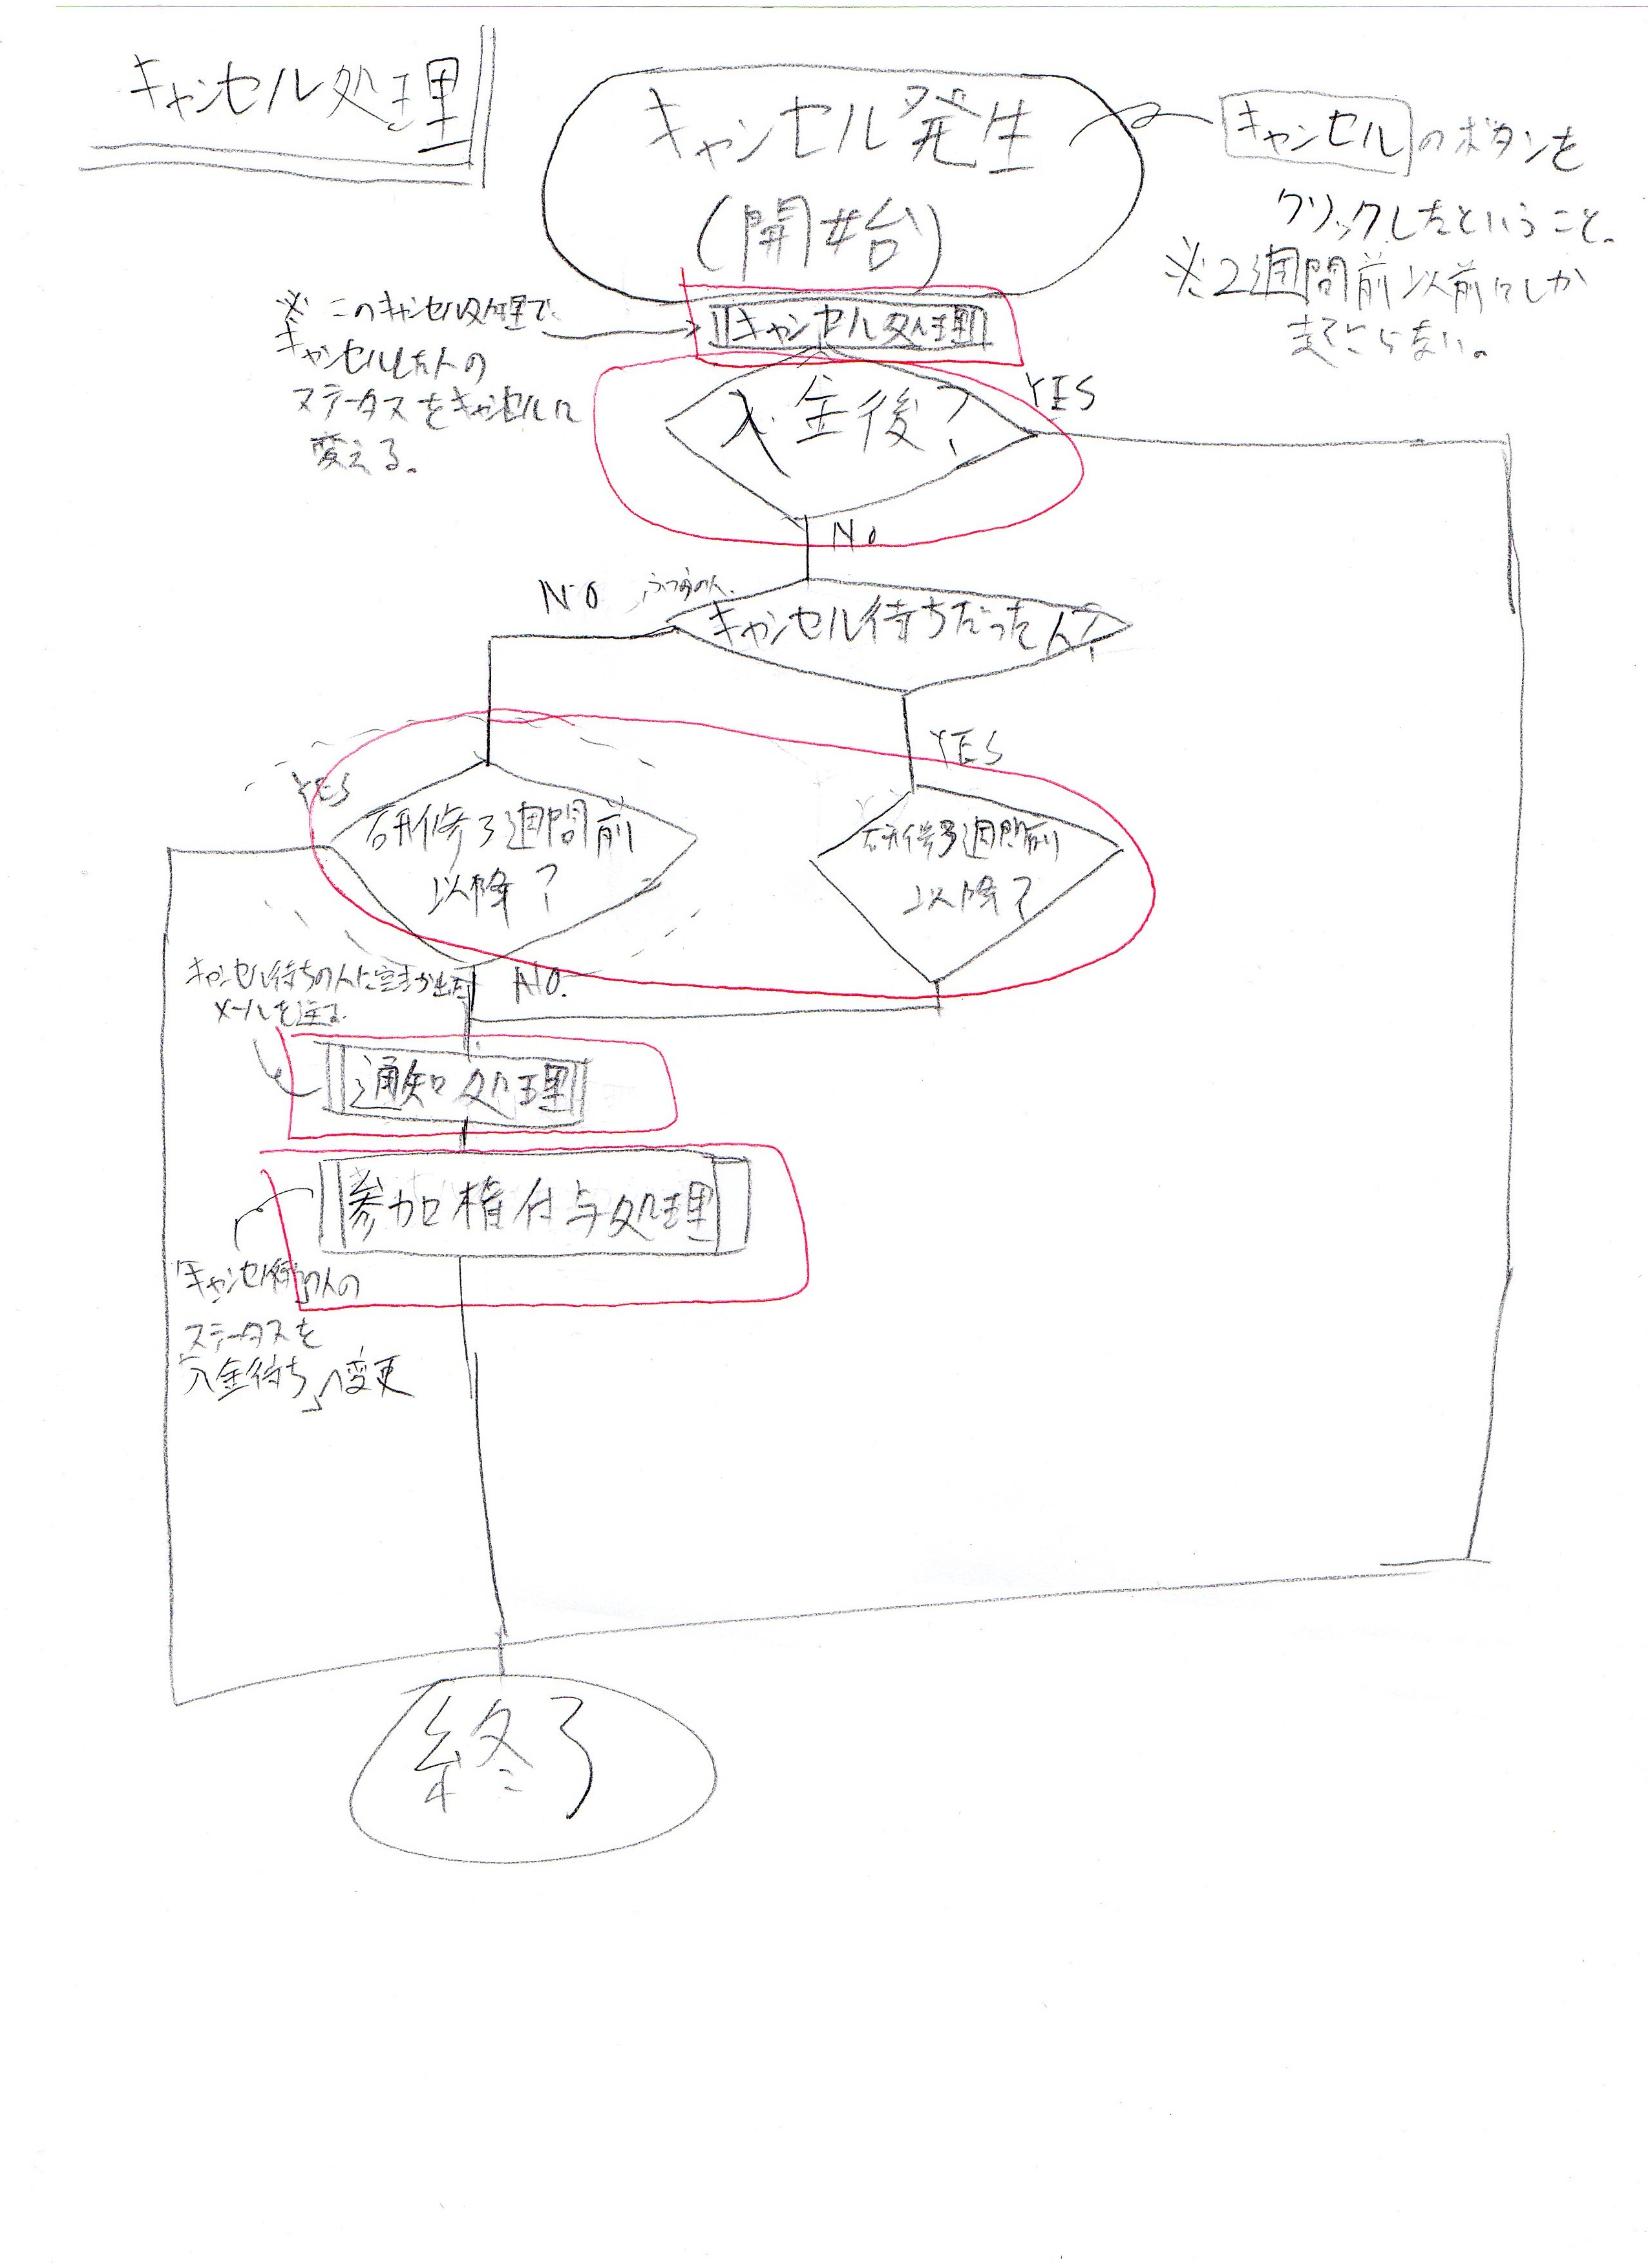 キャンセル処理
キャンセル発生
(開始)
キャンセルのボタンを
クリックしたということ。
※2週間前以前にしか
起こらない。
※このキャンセル処理で、
キャンセルした人の
ステータスをキャンセルに
変える。
キャンセル処理
入金後?
YES
NO
NO
ふつうの人
キャンセル待ちだった人?
YES
YES
研修3週間前
以降?
研修3週間前
以降?
キャンセル待ちの人に空きが出た
メールを送る
NO
通知処理
参加権付与処理
「キャンセル待ち」の人の
ステータスを
「入金待ち」へ変更
終了